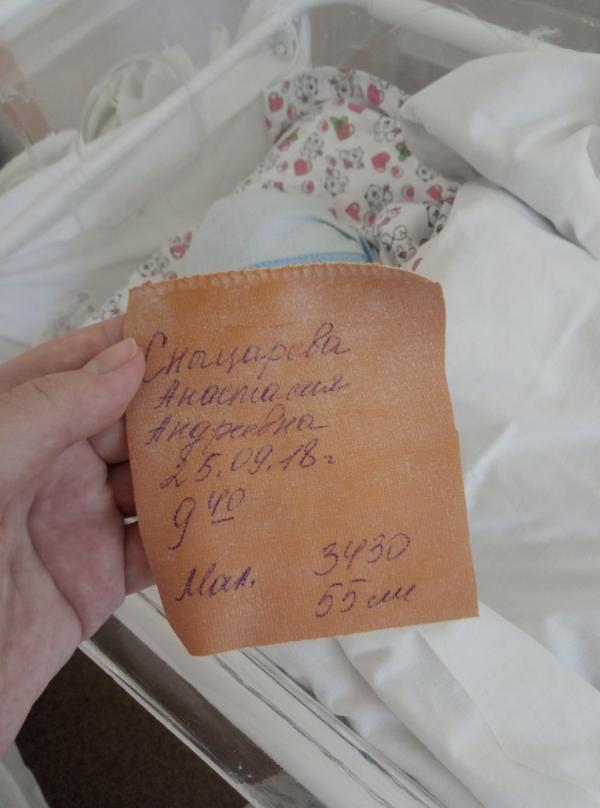 Сныцарева
Анастасия
Андреевна
25.09.18г
9 40
Мал. 3430
55 см